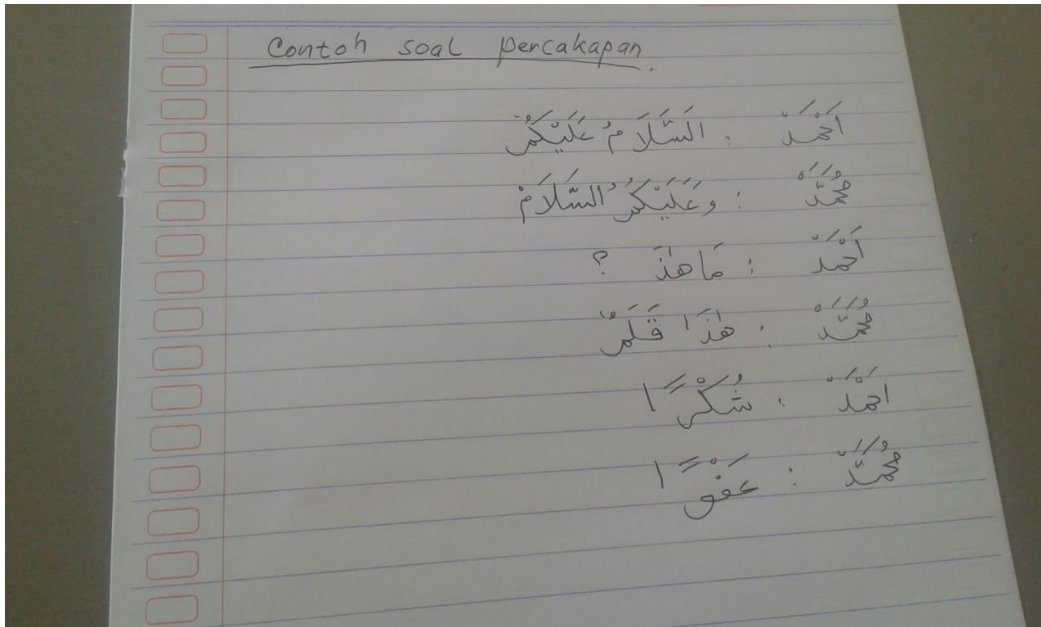 Contoh soal percakapan.
أَحْمَدْ : السَّلَامُ عَلَيْكُمْ
مُحَمَّدْ : وَعَلَيْكُمُ السَّلَامْ
أَحْمَدْ : مَا هٰذَ ؟
مُحَمَّدْ : هٰذَا قَلَمٌ
احْمَدْ : شُكْرًا
مُحَمَّدْ : عَفْوًا